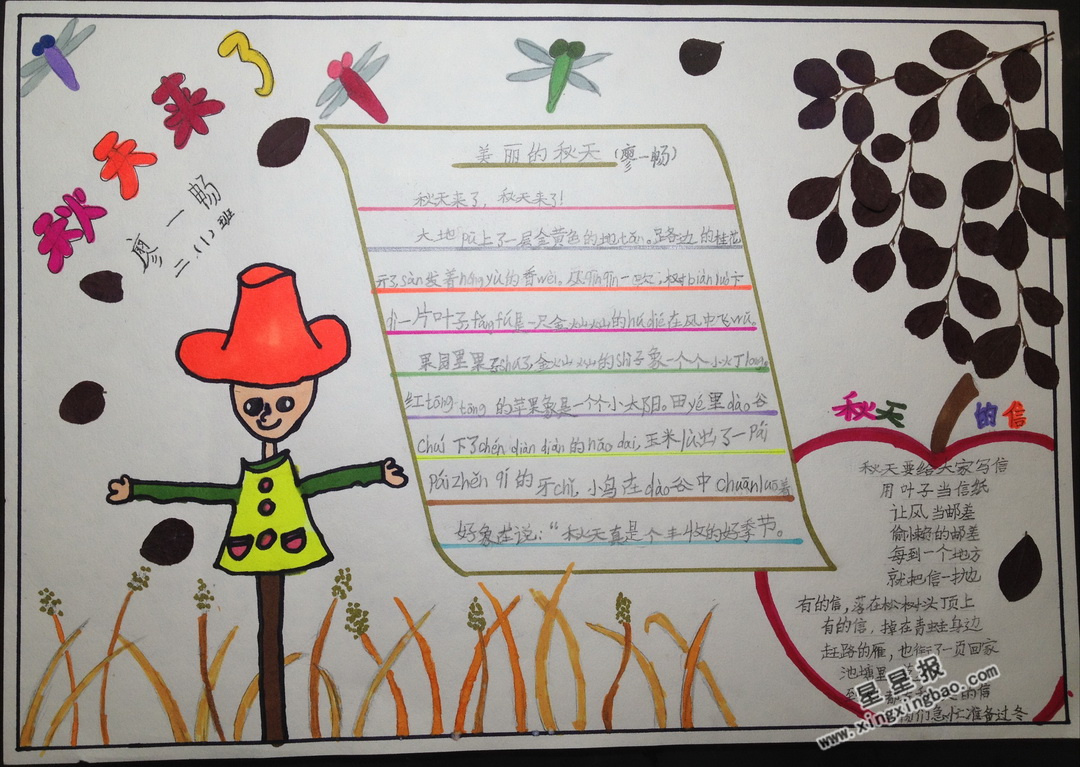 秋天来了
廖一畅
二.(1)班
美丽的秋天(廖一畅)
秋天来了，秋天来了!
大地pū上了一层金黄色的地tǎn。路各边的桂花
开了sàn发着nóng yù的香wèi。一吹，树biàn luò下
小一片叶子fǎng fú是一只金灿灿的hú dié在风中飞wǔ。
果园里果子shú了,金灿灿的shì子象一个个小灯long。
红tōng tōng的苹果象是一个个小太阳。田yě里dào谷
chuí下了chén diàn diàn的nǎo dai,玉米lù出了一pái
pái zhěn qí的牙chǐ,小鸟在dào谷中chuān luō着
好象在说：“秋天真是个丰收的好季节。
秋天的信
秋天要给大家写信
用叶子当信纸
让风当邮差
偷懒的邮差
每到一个地方
就把信一抛
有的信，落在松树头丁页上
有的信，掉在青蛙身边
赶路的雁，也衔了一页回家
池塘里
的信
们急忙准备过冬
星星报
www.xingxingbao.com